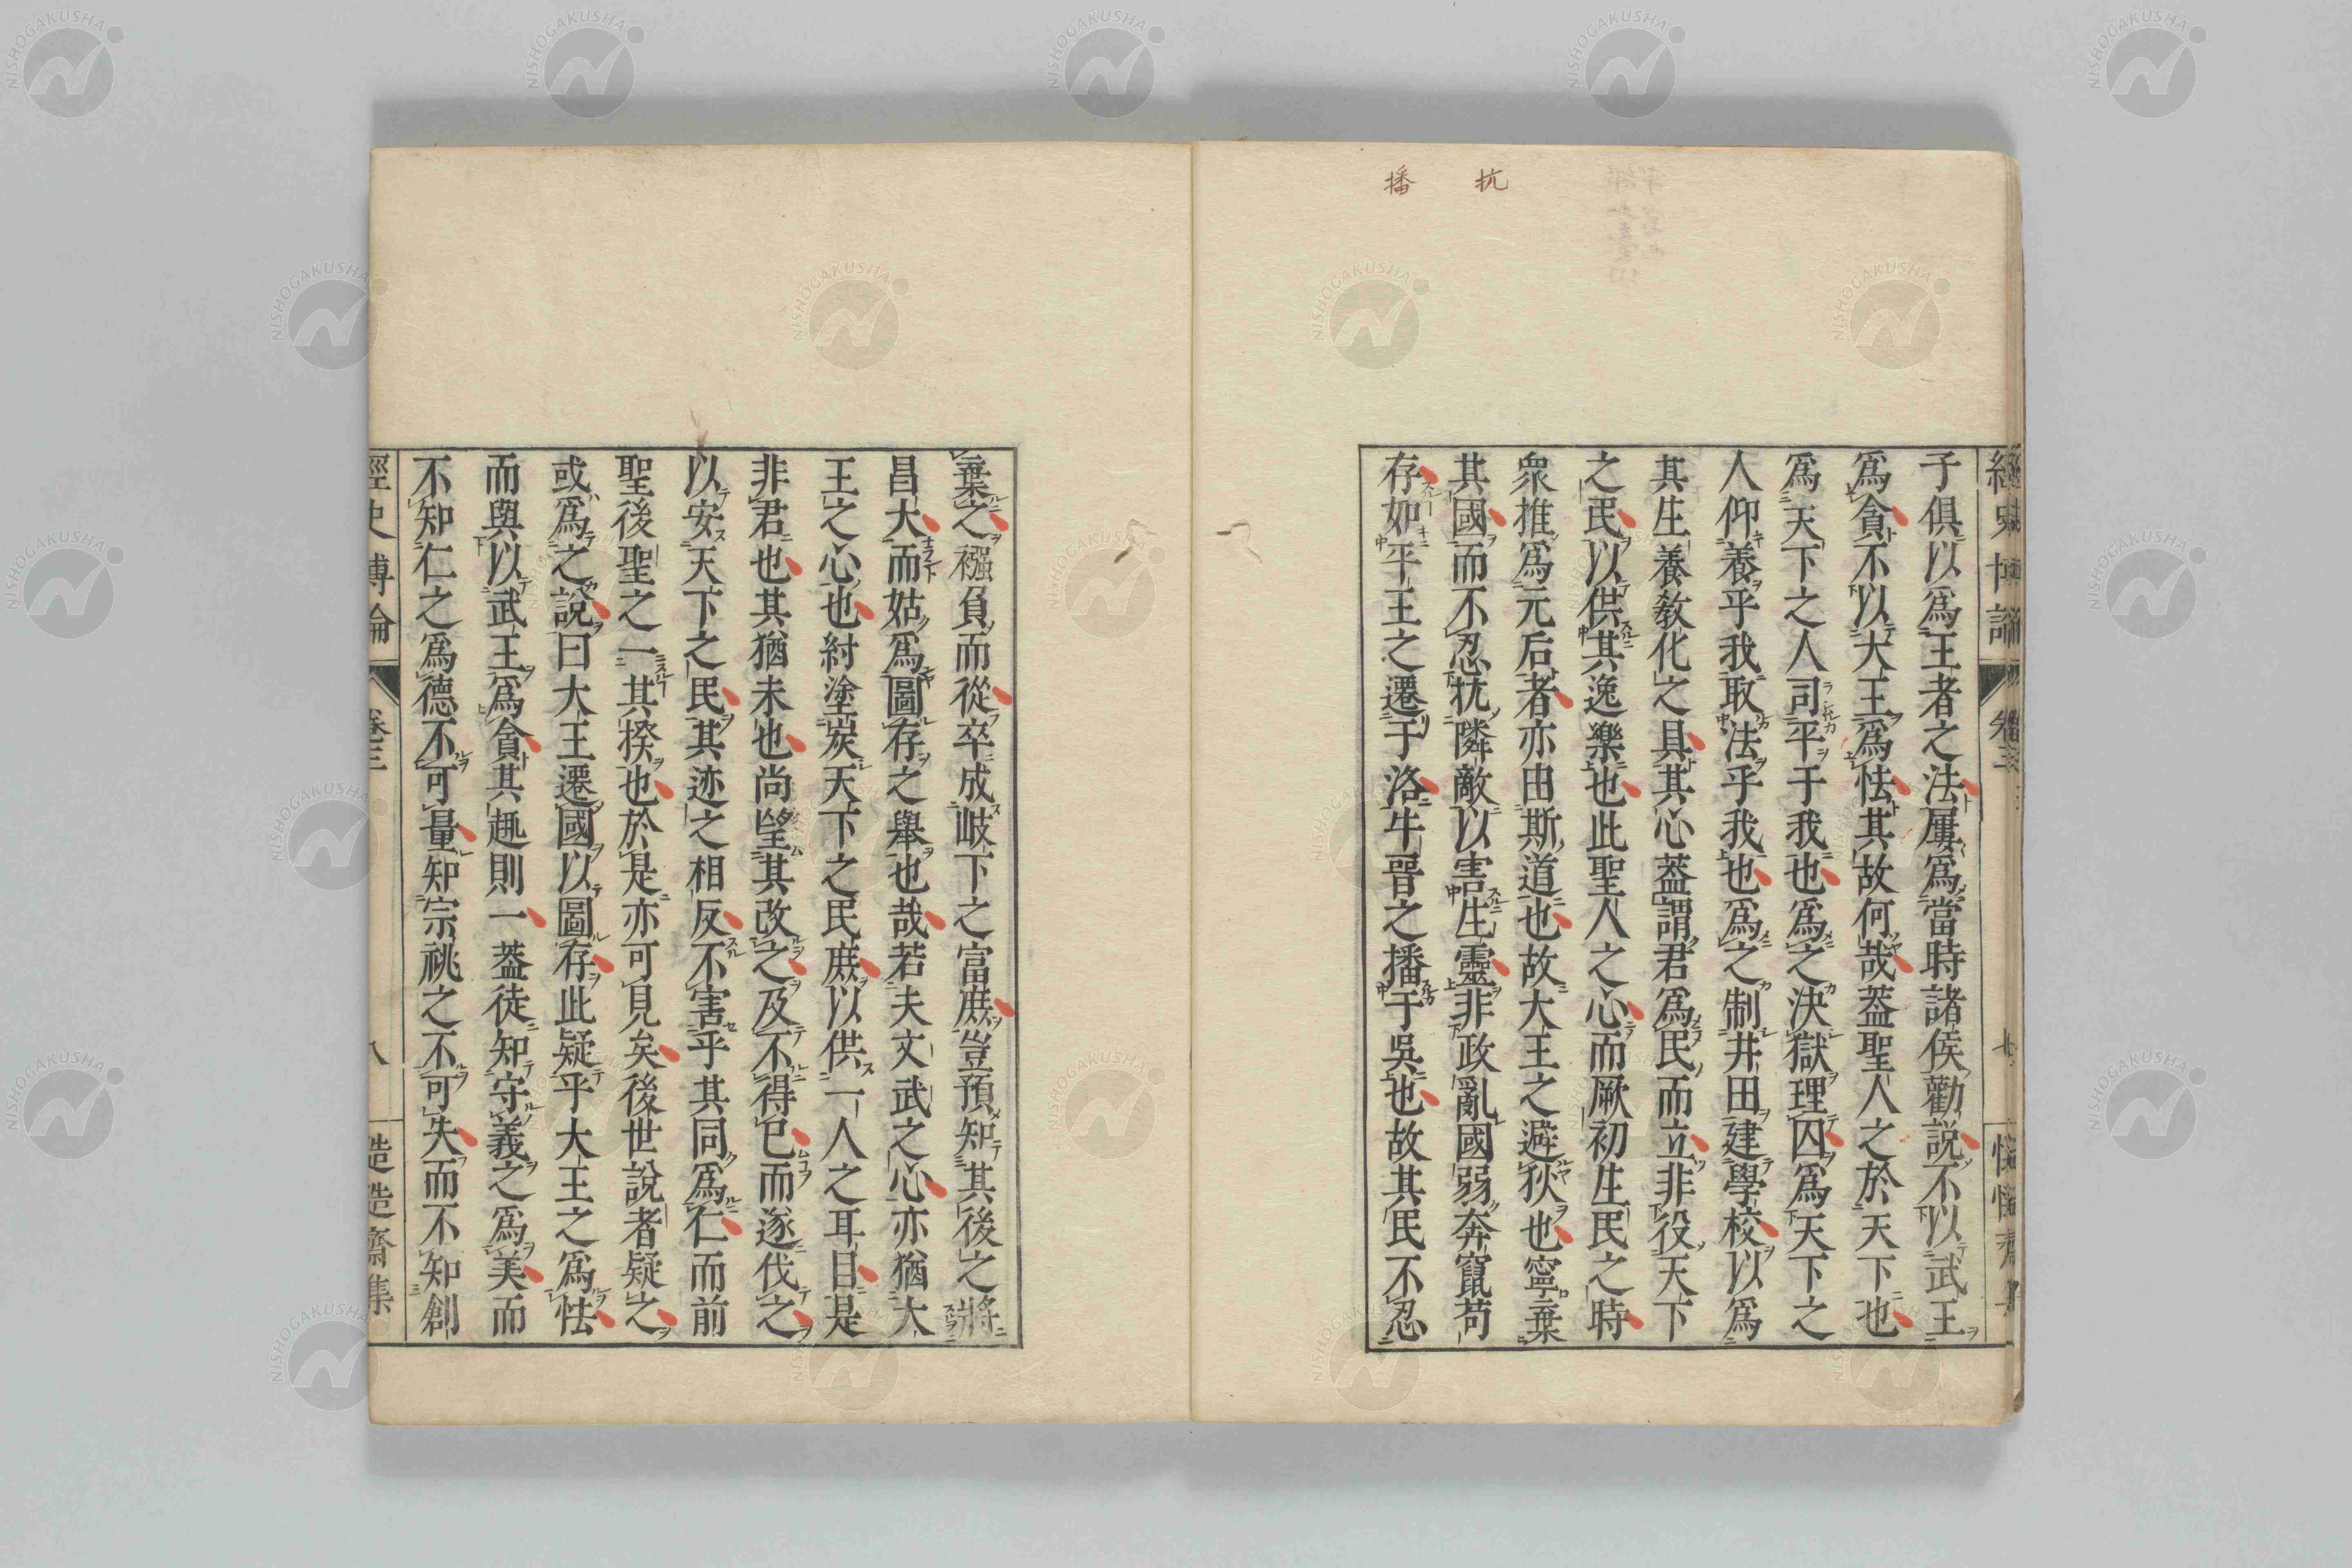 抗
播
子俱以爲王者之法屢爲當時諸侯勸說不以武王
爲貪不以大王爲怯其故何哉蓋聖人之於天下也
爲天下之人司平于我也爲之決獄理囚爲天下之
人仰養乎我取法乎我也爲之制井田建學校以爲
其生養敎化之具其心蓋謂君爲民而立非役天下
之民以供其逸樂也此聖人之心而厥初生民之時
衆推爲元后者亦由斯道也故大王之避狄也寧棄
其國而不忍抗隣敵以害生靈非政亂國弱奔竄苟
存如平王之遷于洛牛晉之播于吳也故其民不忍
棄之襁負而從卒成岐下之富庶豈預知其後之將
昌大而姑爲圖存之舉也哉若夫文武之心亦猶大
王之心也紂塗炭天下之民庶以供一人之耳目是
非君也其猶未也尚望其改之及不得已而遂伐之
以安天下之民其迹之相反不害乎其同爲仁而前
聖後聖之一其揆也於是亦可見矣後世說者疑之
或爲之說曰大王遷國以圖存此疑乎大王之爲怯
而與以武王爲貪其趣則一蓋徒知守義之爲美而
不知仁之爲德不可量知宗祧之不可失而不知創
經史博論
卷三
八
造造齋集
NISHOGAKUSHA